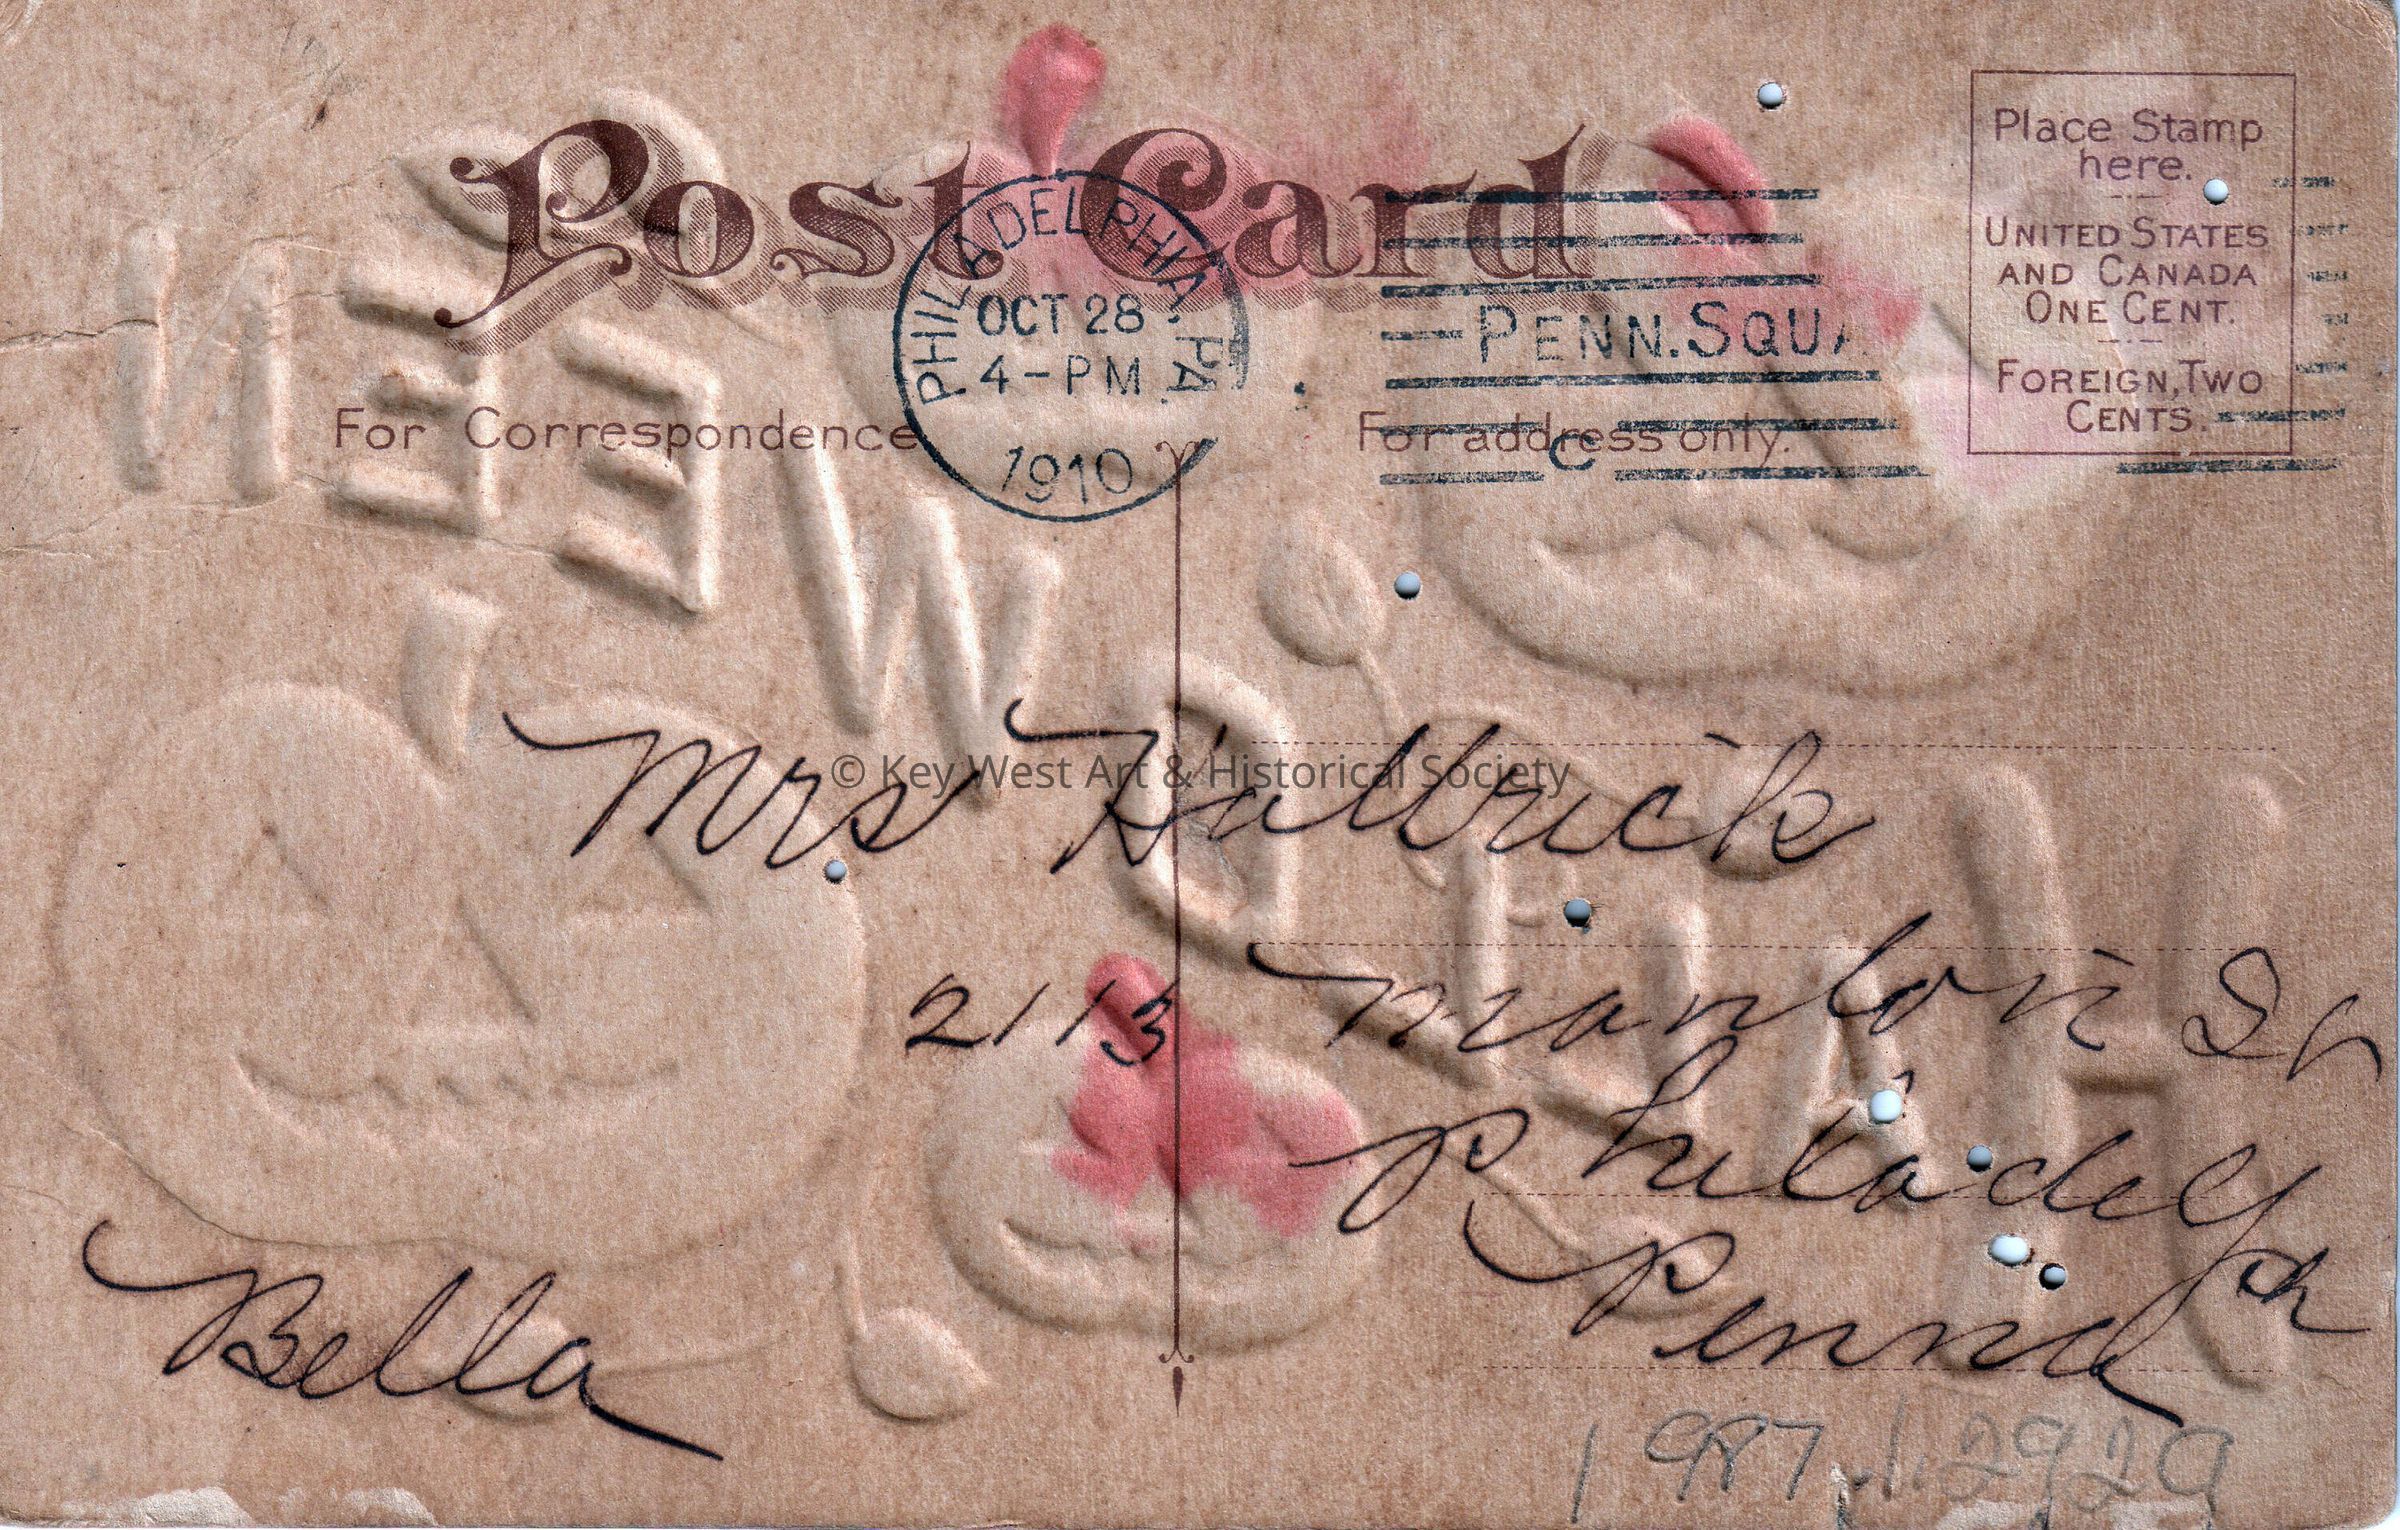 Post Card
PHILADELPHIA PA.
OCT 28
4-PM
1910
PENN. SQUA
C
Place Stamp
here.
UNITED STATES
AND CANADA
ONE CENT.
FOREIGN, TWO
CENTS.
For Correspondence
For address only.
HALLOWEEN
Mrs Hallrick
© Key West Art & Historical Society
2113 Manton St
Philadelph
Penna
Bella
1987.1.2929